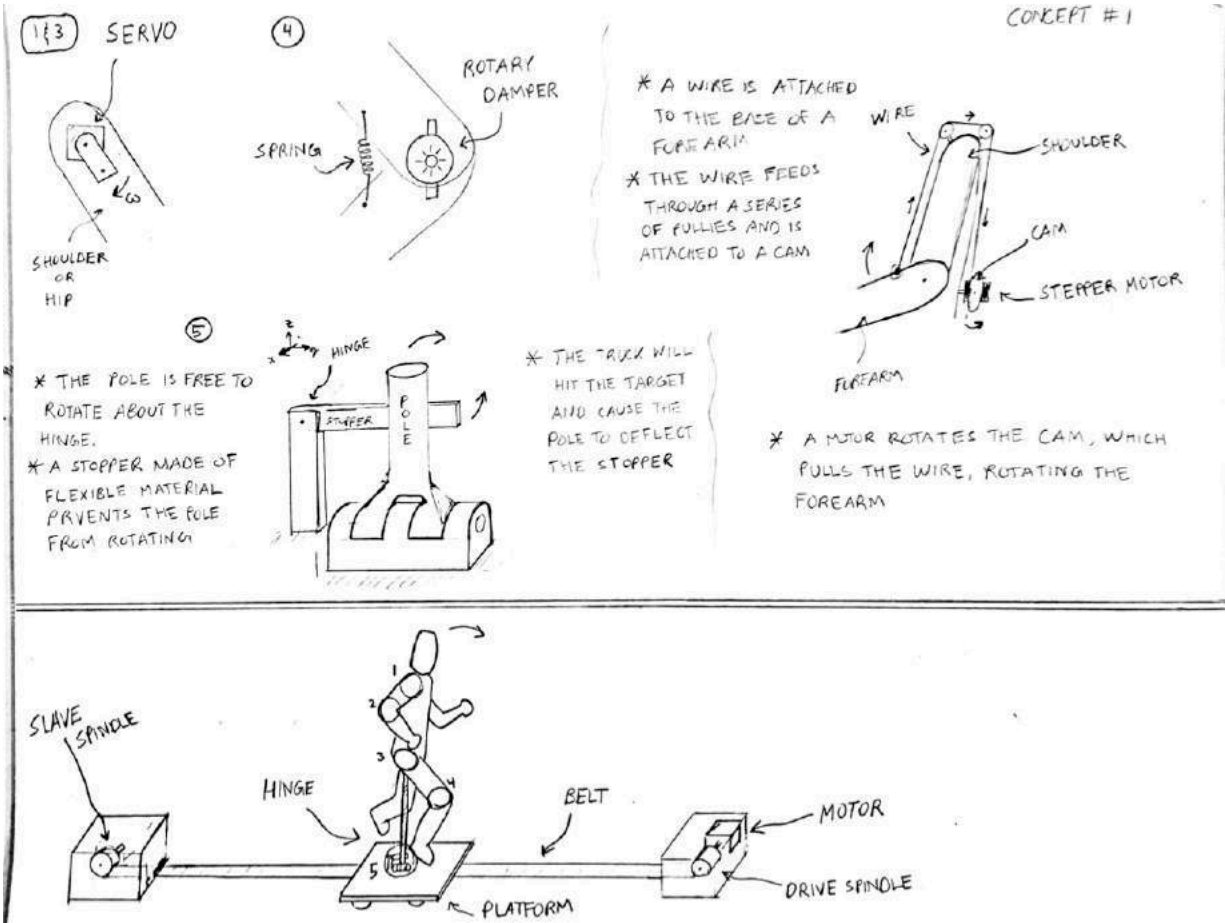 CONCEPT #1
1&3 SERVO
ω
SHOULDER
OR
HIP
4
SPRING
ROTARY
DAMPER
* A WIRE IS ATTACHED
TO THE BASE OF A
FOREARM
* THE WIRE FEEDS
THROUGH A SERIES
OF PULLIES AND IS
ATTACHED TO A CAM
WIRE
SHOULDER
CAM
STEPPER MOTOR
FOREARM
* A MOTOR ROTATES THE CAM, WHICH
PULLS THE WIRE, ROTATING THE
FOREARM
5
* THE POLE IS FREE TO
ROTATE ABOUT THE
HINGE.
* A STOPPER MADE OF
FLEXIBLE MATERIAL
PRVENTS THE POLE
FROM ROTATING
z
x
HINGE
STOPPER
POLE
* THE TRUCK WILL
HIT THE TARGET
AND CAUSE THE
POLE TO DEFLECT
THE STOPPER
SLAVE
SPINDLE
HINGE
1
2
3
4
5
BELT
MOTOR
DRIVE SPINDLE
PLATFORM